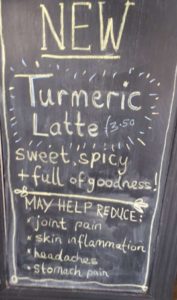 NEW
Turmeric
Latte £3.50
sweet, spicy
+ full of goodness!
MAY HELP REDUCE:
• joint pain
• skin inflammation
• headaches
• stomach pain